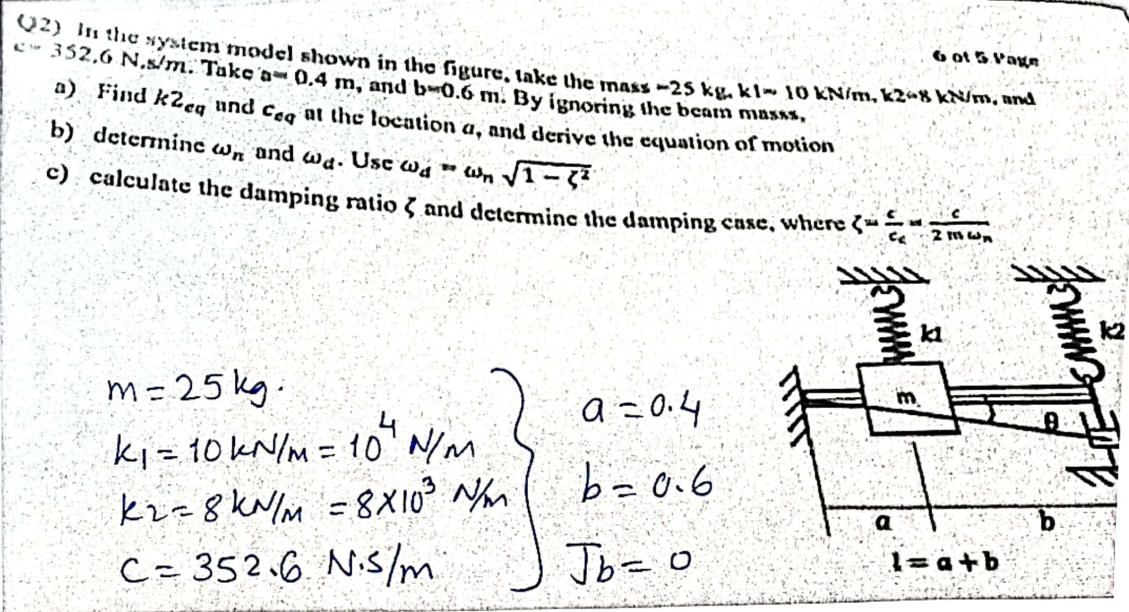 6 of 5 Page
Q2) In the system model shown in the figure, take the mass =25 kg, k1= 10 kN/m, k2=8 kN/m, and
c= 352.6 N.s/m. Take a= 0.4 m, and b=0.6 m. By ignoring the beam masss,
a) Find k2eq and ceq at the location a, and derive the equation of motion
b) determine ωn and ωd. Use ωd = ωn √1 − ζ²
c) calculate the damping ratio ζ and determine the damping case, where ζ= c/cc = c/2 m ωn
k1
k2
m
θ
a
b
l = a + b
m = 25 kg.
k1 = 10 kN/m = 10⁴ N/m
k2 = 8 kN/m = 8X10³ N/m
C = 352.6 N.s/m
a = 0.4
b = 0.6
Jb = 0